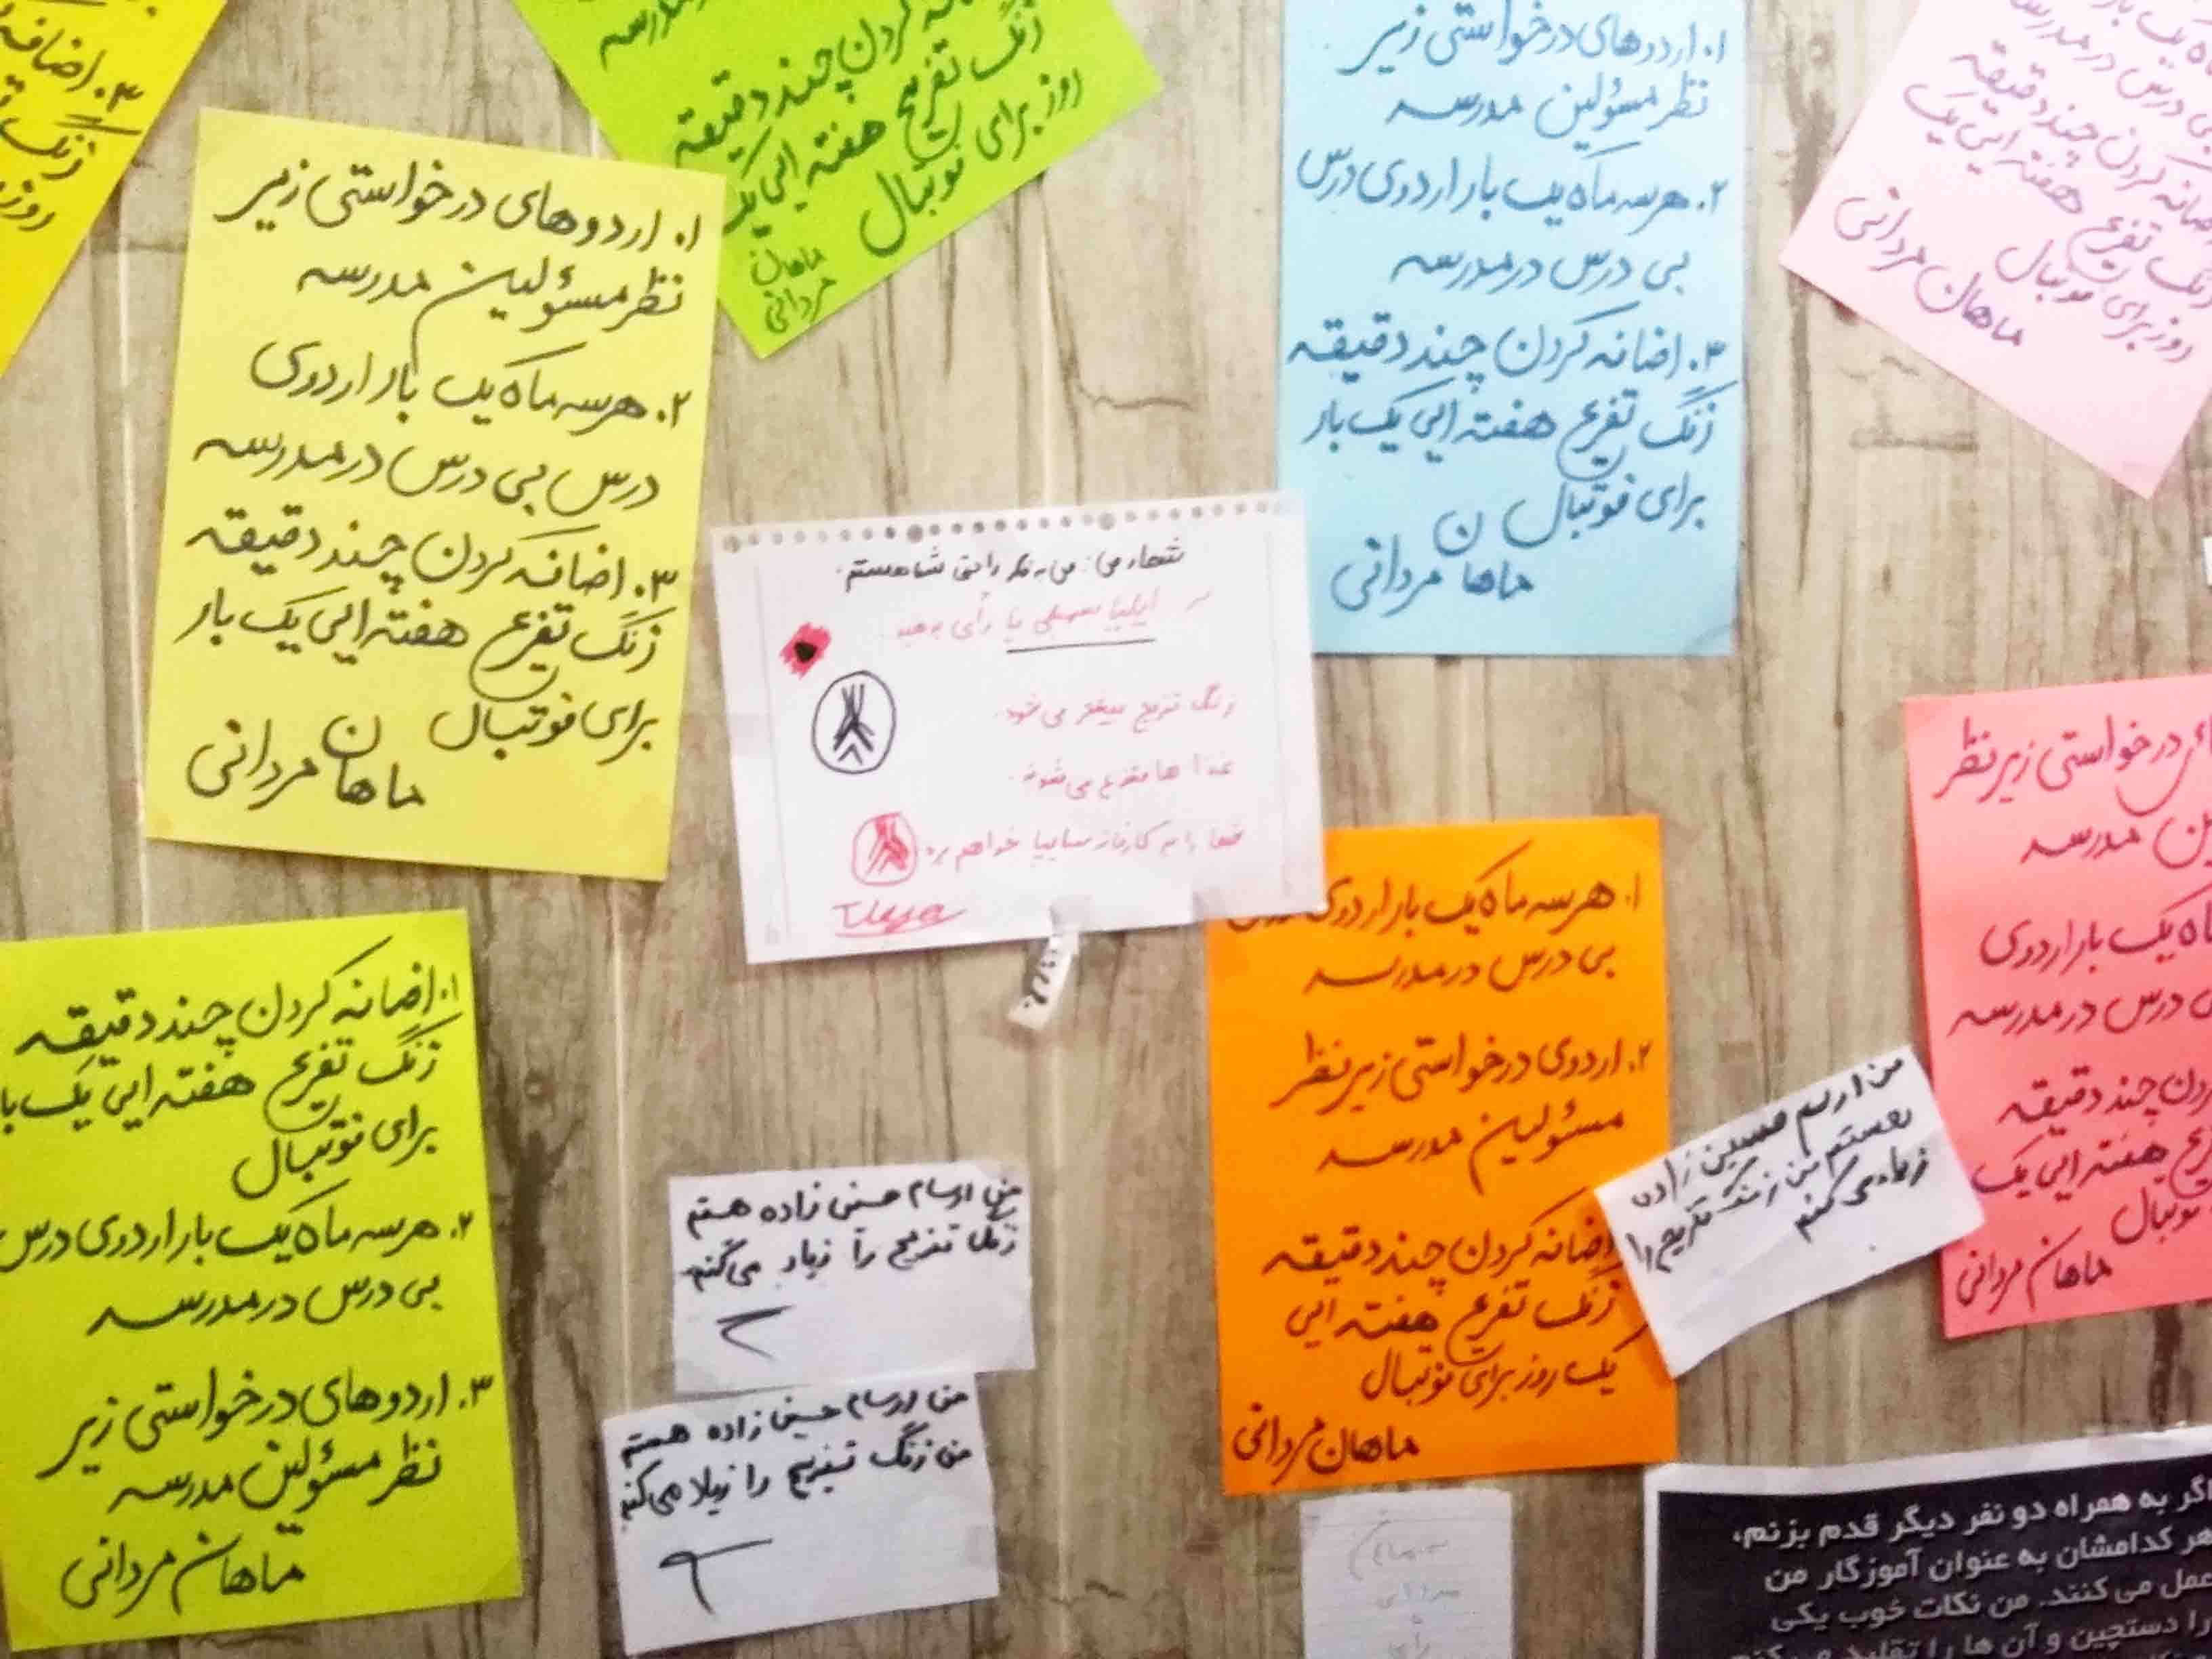 ۳. اضافه
زنگ
روز
کردن چند دقیقه
زنگ تفریح هفته ایی یک
روز برای فوتبال
ماهان
مردانی
۱. اردوهای درخواستی زیر
نظر مسئولین مدرسه
۲. هر سه ماه یک بار اردوی
درس بی درس در مدرسه
۳. اضافه کردن چند دقیقه
زنگ تفریح هفته ایی یک بار
برای فوتبال
ماهان مردانی
۱. اردوهای درخواستی زیر
نظر مسئولین مدرسه
۲. هر سه ماه یک بار اردوی درس
بی درس در مدرسه
۳. اضافه کردن چند دقیقه
زنگ تفریح هفته ایی یک بار
برای فوتبال
ماهان مردانی
درس در مدرسه
کردن چند دقیقه
تفریح هفته ایی یک
روز برای فوتبال
ماهان مردانی
شعار من: من به فکر راحتی شما هستم.
به ایلیا سهیلی نیا رأی بدهید
زنگ تفریح بیشتر می شود.
غذا ها متنوع می شوند.
شما را به کارخانه سایپا خواهم برد
۱. اضافه کردن چند دقیقه
زنگ تفریح هفته ایی یک با
برای فوتبال
۲. هر سه ماه یک بار اردوی درس
بی درس در مدرسه
۳. اردوهای درخواستی زیر
نظر مسئولین مدرسه
ماهان مردانی
من ارسام حسینی زاده هستم
زنگ تفریح را زیاد می کنم
من ارسام حسینی زاده هستم
من زنگ تفریح را زیاد می کنم
۱. هر سه ماه یک بار اردوی درس
بی درس در مدرسه
۲. اردوی درخواستی زیر نظر
مسئولین مدرسه
اضافه کردن چند دقیقه
زنگ تفریح هفته ایی
یک روز برای فوتبال
ماهان مردانی
من ارسام حسین زاده
هستم من زنگ تفریح را
زیاد می کنم
درخواستی زیر نظر
مدرسه
ماه یک بار اردوی
درس در مدرسه
کردن چند دقیقه
هفته ایی یک
فوتبال
ماهان مردانی
اگر به همراه دو نفر دیگر قدم بزنم،
هر کدامشان به عنوان آموزگار من
عمل می کنند. من نکات خوب یکی
را دستچین و آن ها را تقلید می کنم